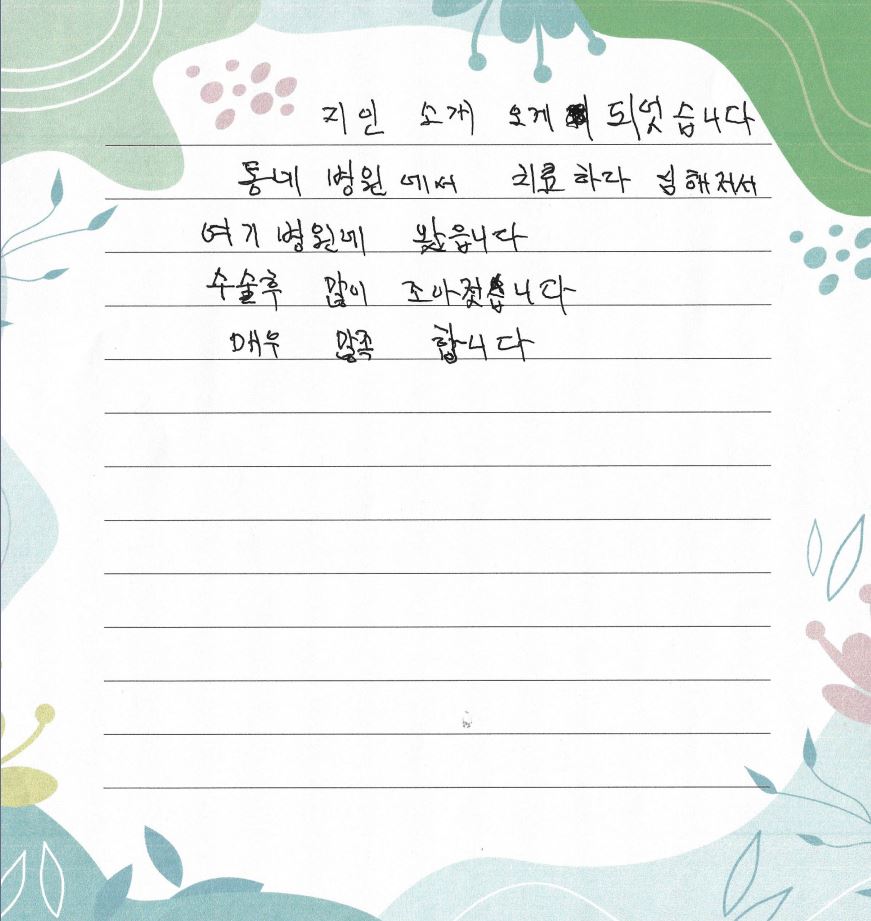 지인 소개 오게 되었습니다
동네 병원에서 치료하다 심해저서
여기 병원에 왔읍니다
수술후 많이 조아젓습니다
매우 만족 합니다